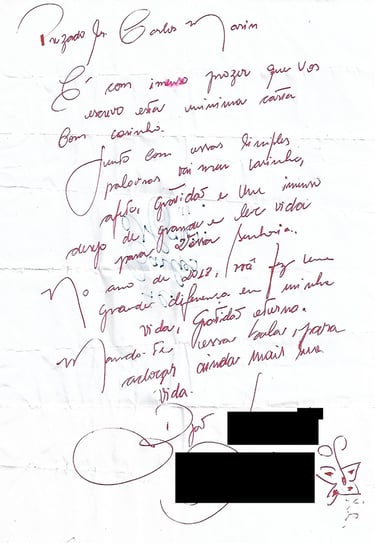 Prezado Sr. Carlos Marin
É com imenso prazer que vos
escrevo esta minima carta
Com carinho.
Junto com essas simples
palavras vai meu carinho,
afeto, Gratidão e um imenso
desejo de grande e leve vida
para Vossa Senhoria.
No ano de 2017, você fez uma
grande diferença em minha
vida, Gratidão eterna.
Mando-te essas balas, para
adoçar ainda mais sua
vida.